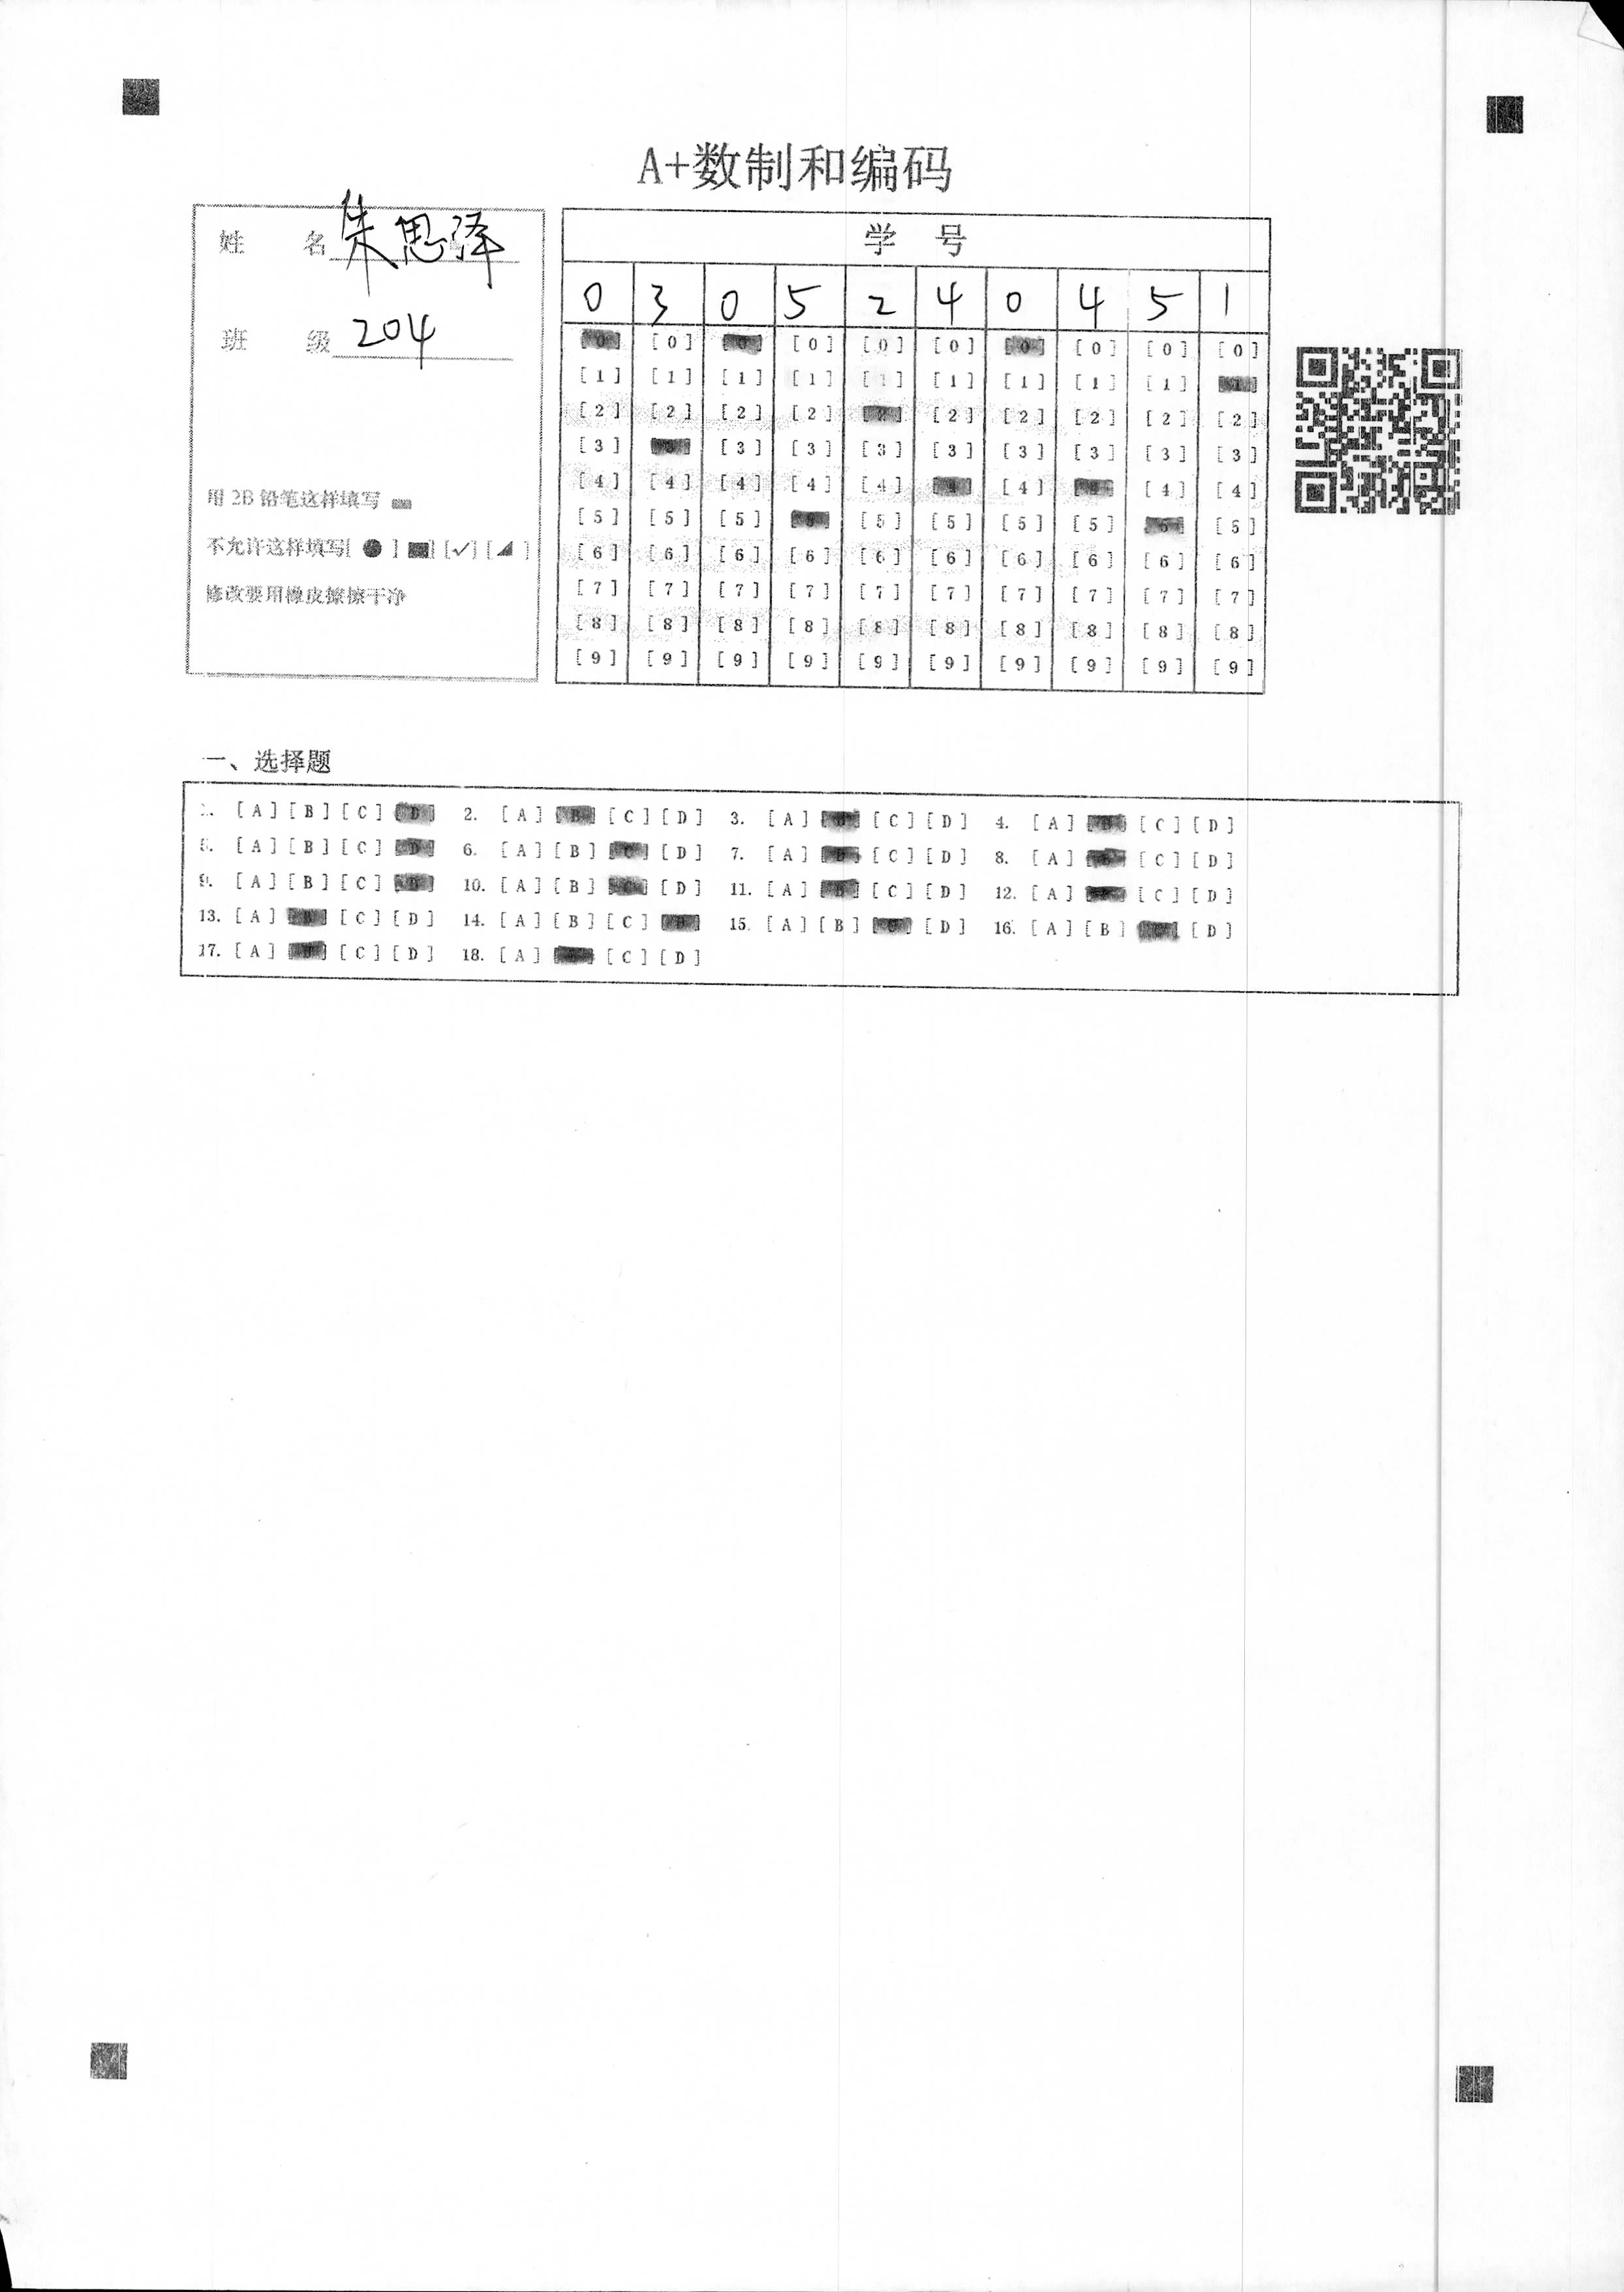 A+数制和编码
姓 名 朱思泽
班 级 204
用 2B 铅笔这样填写
不允许这样填写[ ● ] [■] [✓] [◢ ]
修改要用橡皮擦擦干净
学 号
0 3 0 5 2 4 0 4 5 1
[0] [0] [0] [0] [0] [0] [0] [0] [0] [0]
[1] [1] [1] [1] [1] [1] [1] [1] [1] [1]
[2] [2] [2] [2] [2] [2] [2] [2] [2] [2]
[3] [3] [3] [3] [3] [3] [3] [3] [3] [3]
[4] [4] [4] [4] [4] [4] [4] [4] [4] [4]
[5] [5] [5] [5] [5] [5] [5] [5] [5] [5]
[6] [6] [6] [6] [6] [6] [6] [6] [6] [6]
[7] [7] [7] [7] [7] [7] [7] [7] [7] [7]
[8] [8] [8] [8] [8] [8] [8] [8] [8] [8]
[9] [9] [9] [9] [9] [9] [9] [9] [9] [9]
一、选择题
1. [A] [B] [C] [D] 2. [A] [B] [C] [D] 3. [A] [B] [C] [D] 4. [A] [B] [C] [D]
5. [A] [B] [C] [D] 6. [A] [B] [C] [D] 7. [A] [B] [C] [D] 8. [A] [B] [C] [D]
9. [A] [B] [C] [D] 10. [A] [B] [C] [D] 11. [A] [B] [C] [D] 12. [A] [B] [C] [D]
13. [A] [B] [C] [D] 14. [A] [B] [C] [D] 15. [A] [B] [C] [D] 16. [A] [B] [C] [D]
17. [A] [B] [C] [D] 18. [A] [B] [C] [D]